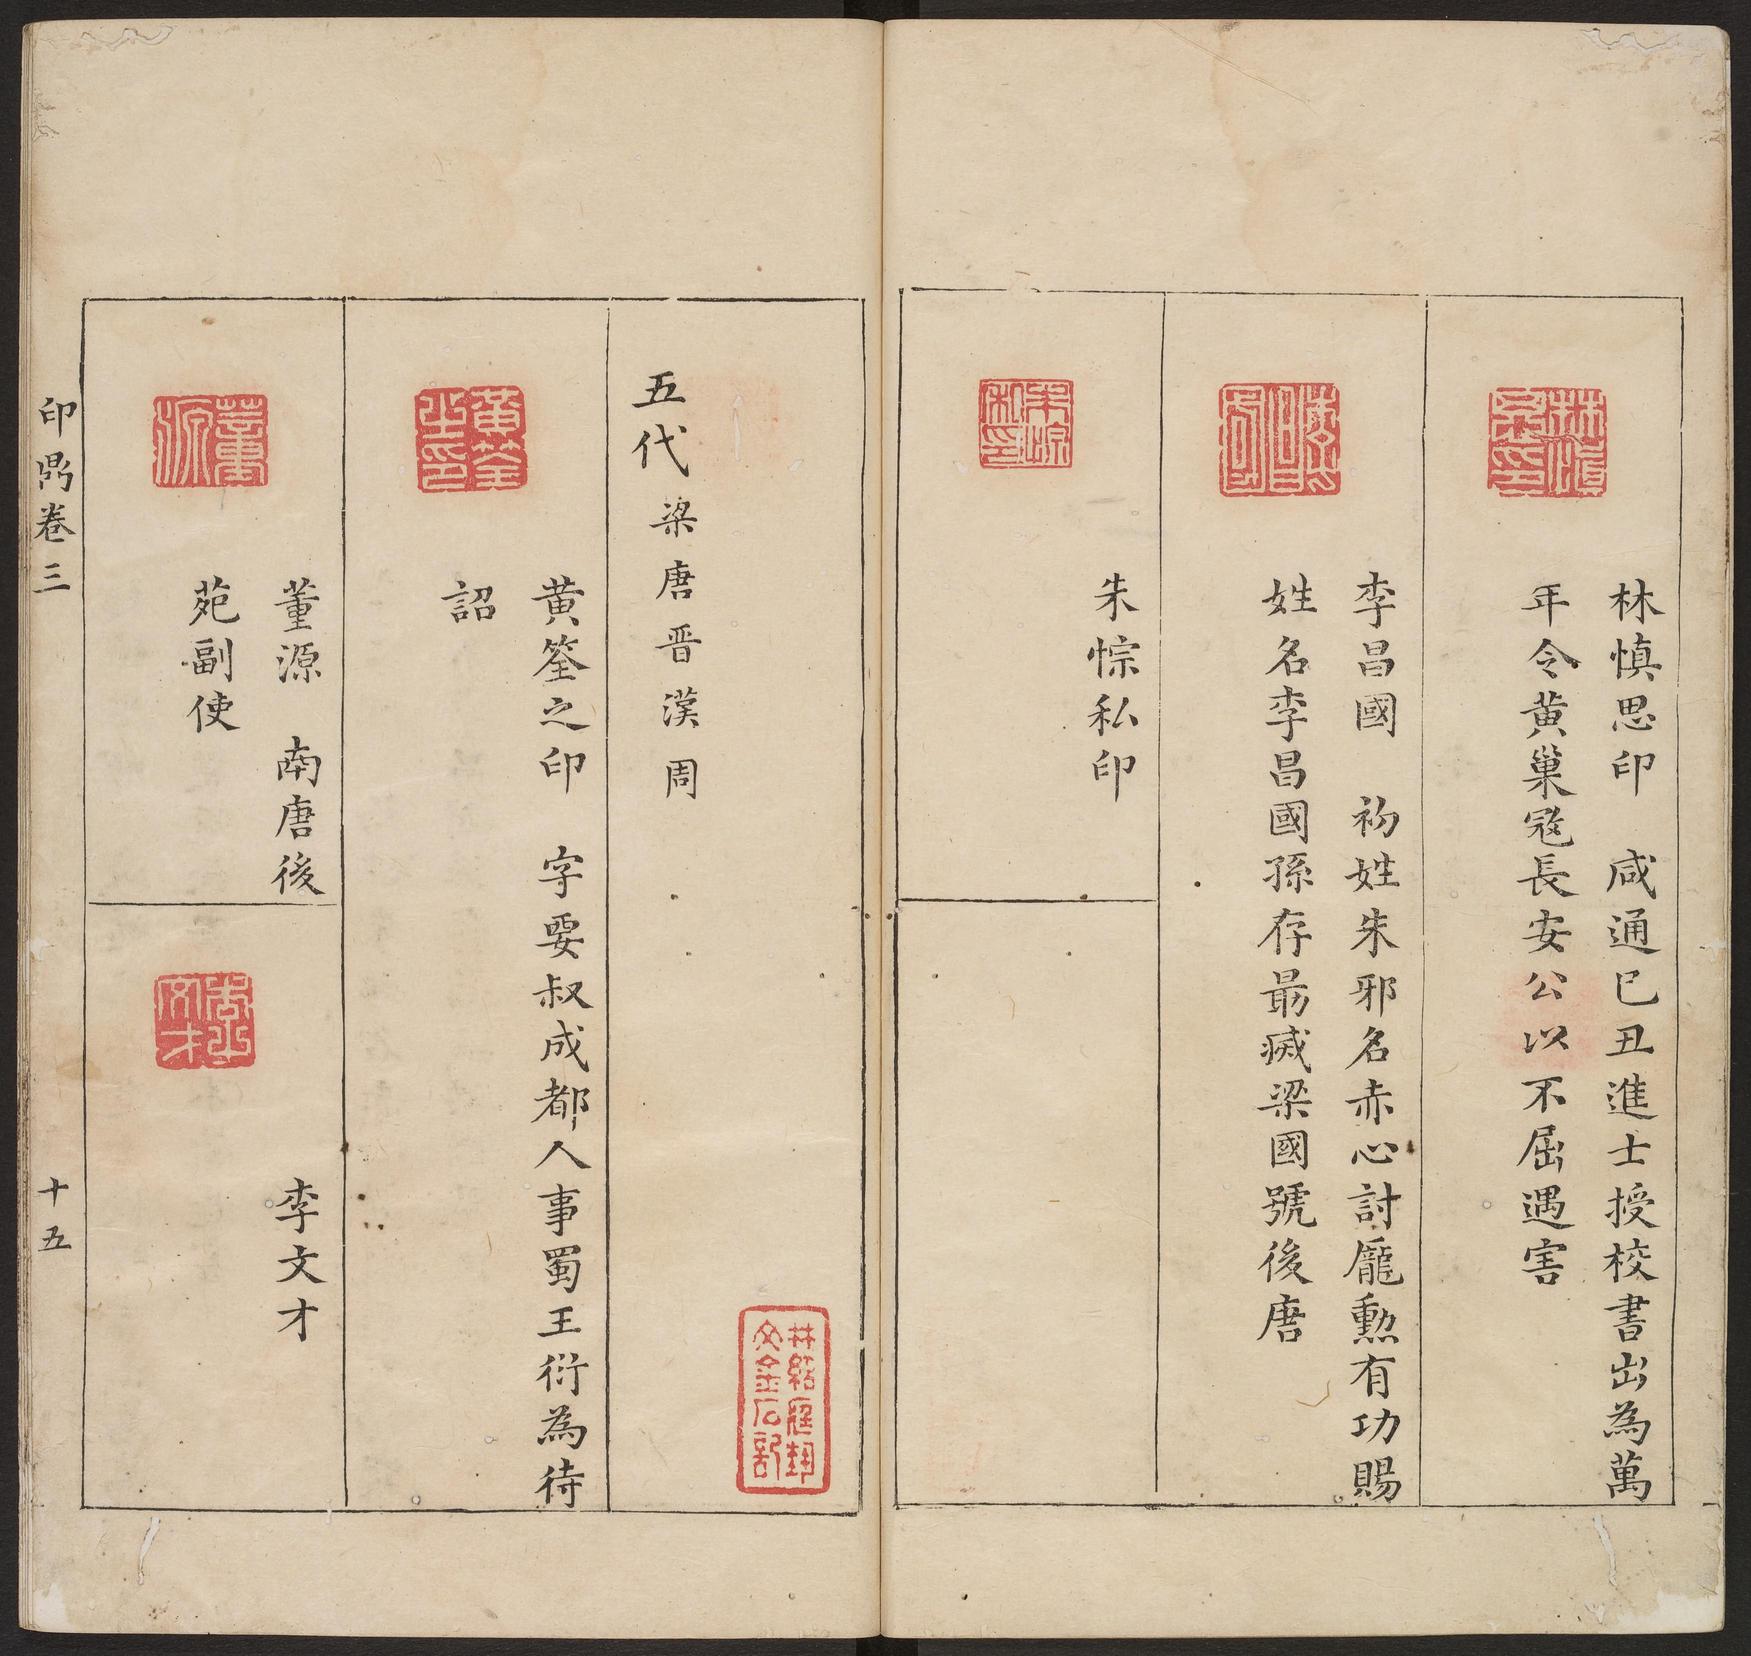 林慎思印　咸通巳丑進士授校書出為萬
年令黃巢寇長安公以不屈遇害
李昌國　初姓朱邪名赤心討龐勳有功賜
姓名李昌國孫存勗滅梁國號後唐
朱悰私印
五代梁唐晋漢周
黃筌之印　字要叔成都人事蜀王衍為待
詔
董源　南唐後
苑副使
李文才
印鼎卷三
十五
林慎
思印
朱悰
私印
黃筌
之印
董
源
李
文才